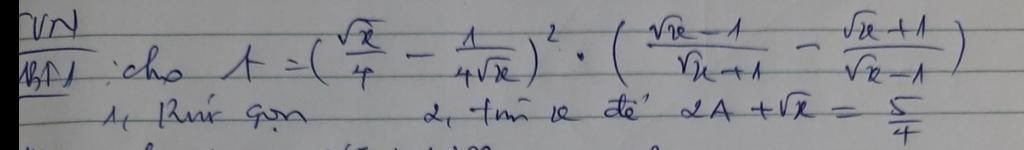 VN
BT1 : cho A = (√x/4 − 1/(4√x))² · ((√x − 1)/(√x + 1) − (√x + 1)/(√x − 1))
1, Rút gọn 2, tìm x để 2A + √x = 5/4